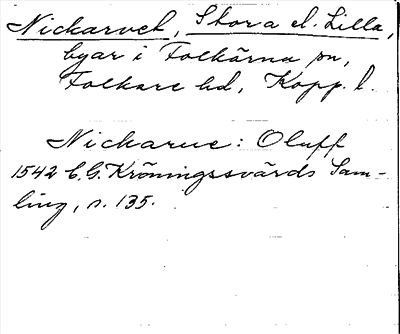 Nickarvet, Stora el. Lilla,
byar i Folkärna sn,
Folkare hd, Kopp. l.
Nickarue: Oluff
1542 C.G. Kröningssvärds Sam-
ling, s. 135.